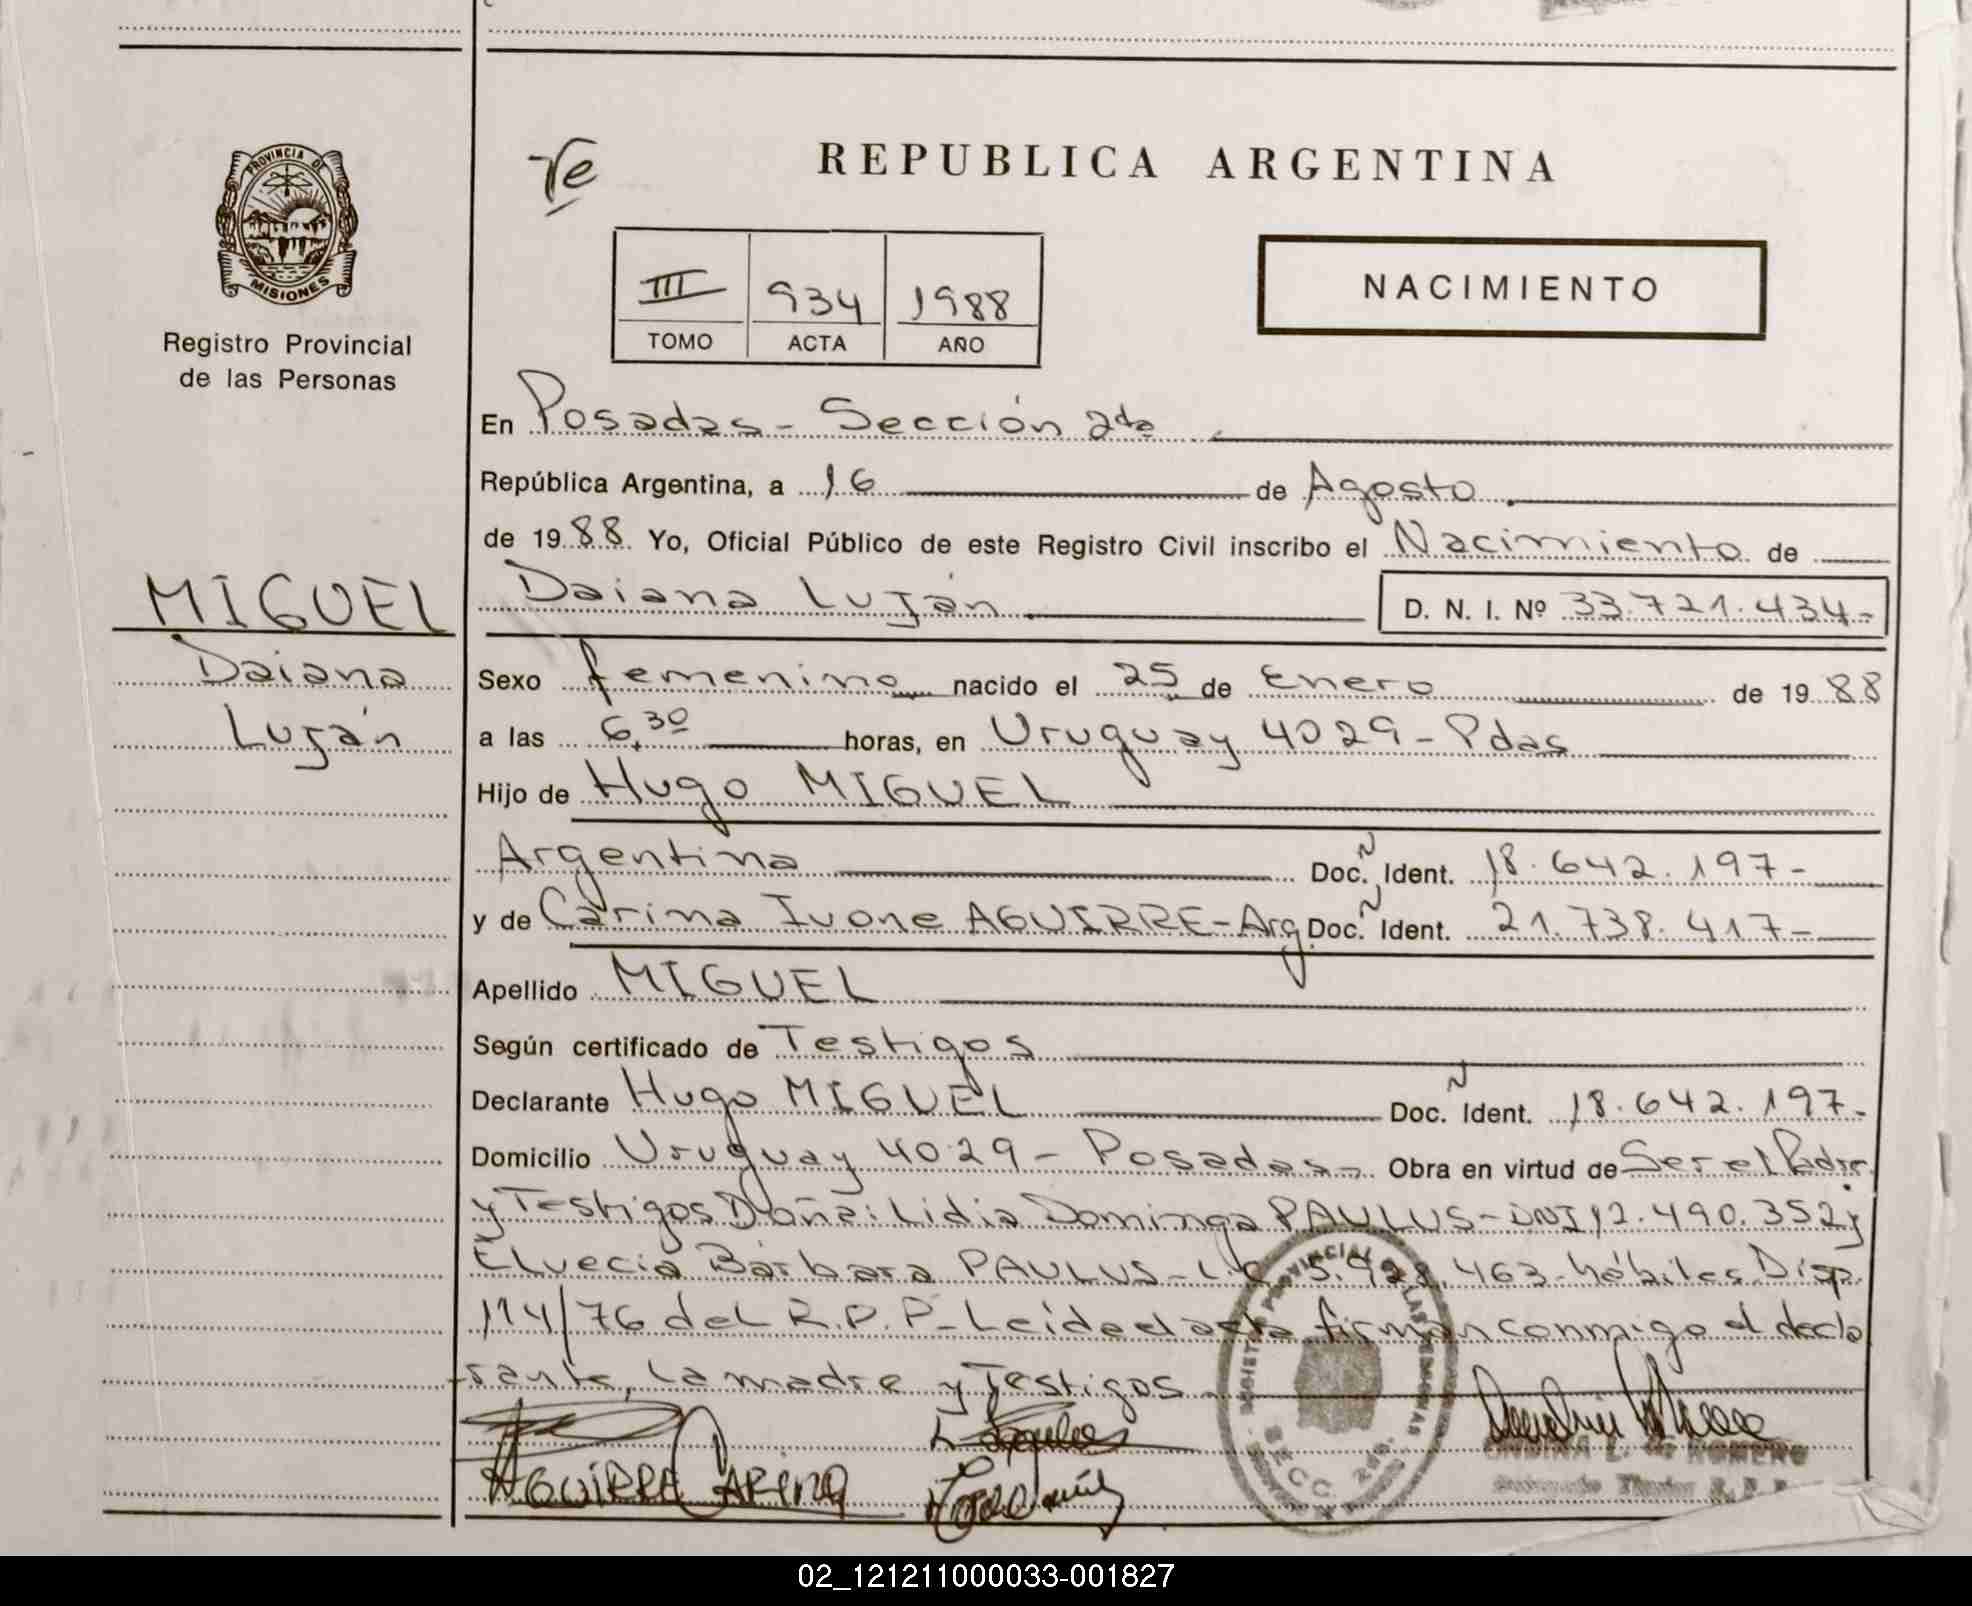 PROVINCIA DE
MISIONES
Registro Provincial
de las Personas
MIGUEL
Daiana
Luján
REPUBLICA ARGENTINA
NACIMIENTO
III 934 1988
TOMO ACTA AÑO
En Posadas - Sección 2da
República Argentina, a 16 de Agosto
de 1988 Yo, Oficial Público de este Registro Civil inscribo el Nacimiento de
Daiana Luján D. N. I. Nº 33.721.434-
Sexo femenino nacido el 25 de Enero de 1988
a las 6,30 horas, en Uruguay 4029 - Pdas
Hijo de Hugo MIGUEL
Argentina Doc. Ident. 18.642.197-
y de Carina Ivone AGUIRRE - Arg. Doc. Ident. 21.738.417-
Apellido MIGUEL
Según certificado de Testigos
Declarante Hugo MIGUEL Doc. Ident. 18.642.197-
Domicilio Uruguay 4029 - Posadas - Obra en virtud de Ser el Padre
y Testigos Doña: Lidia Dominga PAULUS - DNI 12.490.352 y
Elvecia Bárbara PAULUS - L.C. 5.928.463 - hábiles Disp.
114/76 del R.P.P - Leida el acta firman conmigo el decla
rante, la madre y Testigos
AGUIRRE CARINA
02_121211000033-001827